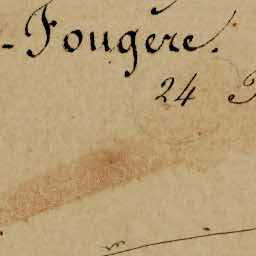 -Fougère.
24